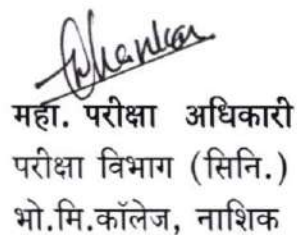 महा. परीक्षा अधिकारी
परीक्षा विभाग (सिनि.)
भो.मि.कॉलेज, नाशिक